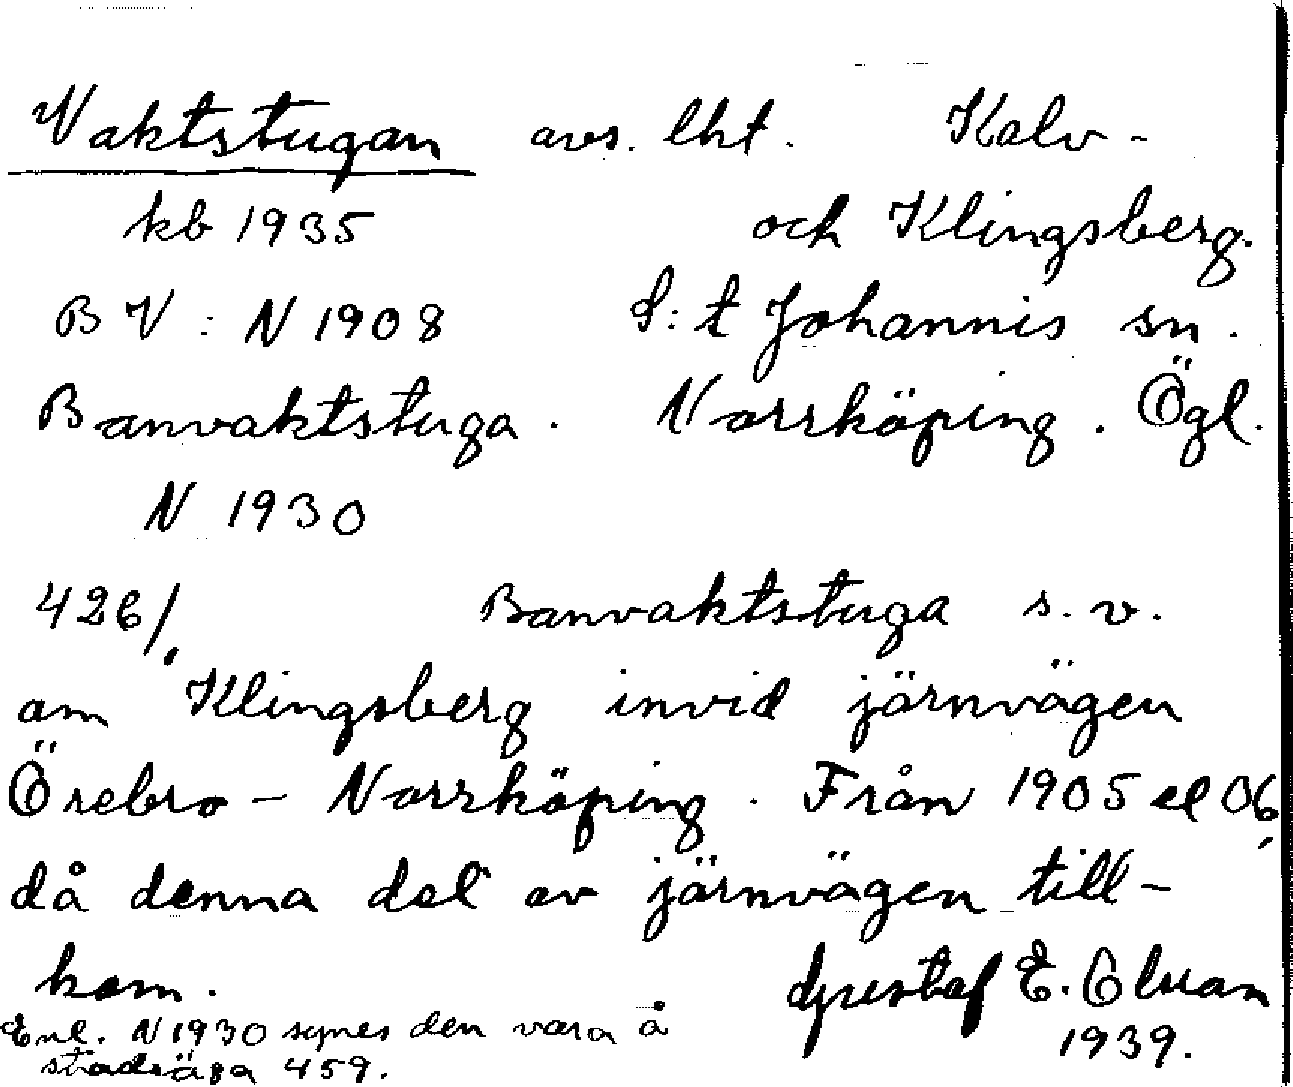 Vaktstugan avs. lht. Kalv-
kb 1935 och Klingsberg.
BV: N 1908 S:t Johannis sn.
Banvaktstuga. Norrköping. Ögl.
N 1930
426/. Banvaktstuga s.v.
om Klingsberg invid järnvägen
Örebro - Norrköping. Från 1905 el 06,
då denna del av järnvägen till-
kom. Gustaf E.
Enl. N 1930 synes den vara å 1939.
stadsäga 459.